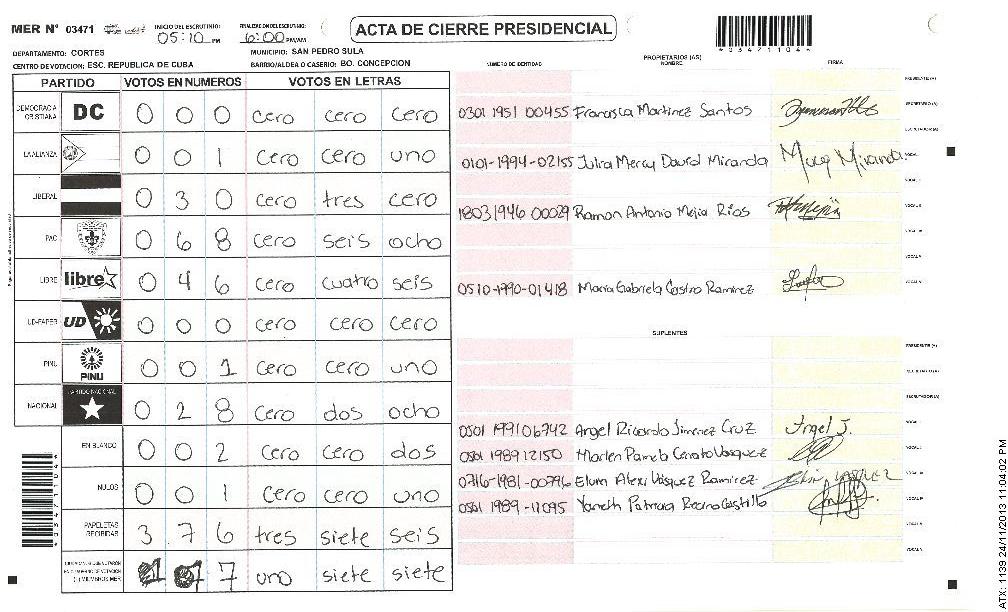 MER N° 03471
INICIO DEL ESCRUTINIO: 05:10 PM
FINALIZACION DEL ESCRUTINIO: 6:00 PM/AM
ACTA DE CIERRE PRESIDENCIAL
DEPARTAMENTO: CORTES
MUNICIPIO: SAN PEDRO SULA
CENTRO DE VOTACION: ESC. REPUBLICA DE CUBA
BARRIO/ALDEA O CASERIO: BO. CONCEPCION
PARTIDO VOTOS EN NUMEROS VOTOS EN LETRAS
DEMOCRACIA CRISTIANA DC 0 0 0 cero cero cero
LA ALIANZA 0 0 1 cero cero uno
LIBERAL 0 3 0 cero tres cero
PAC 0 6 8 cero seis ocho
LIBRE libre 0 4 6 cero cuatro seis
UD-FAPER UD 0 0 0 cero cero cero
PINU PINU 0 0 1 cero cero uno
NACIONAL PARTIDO NACIONAL 0 2 8 cero dos ocho
EN BLANCO 0 0 2 cero cero dos
NULOS 0 0 1 cero cero uno
PAPELETAS RECIBIDAS 3 7 6 tres siete seis
1 7 7 uno siete siete
NUMERO DE IDENTIDAD
PROPIETARIOS (AS)
NOMBRE
FIRMA
PRESIDENTE (A)
SECRETARIO (A)
0301 1951 00455 Francisca Martinez Santos
ESCRUTADOR (A)
0101-1994-02155 Julia Mercy David Miranda Mercy Miranda
VOCAL I
18031946 00029 Ramon Antonio Mejia Rios
VOCAL II
VOCAL III
VOCAL IV
0510-1990-01418 Maria Gabriela Castro Ramirez
VOCAL V
SUPLENTES
PRESIDENTE (A)
SECRETARIO (A)
ESCRUTADOR (A)
0501 199106742 Angel Ricardo Jimenez Cruz Angel J.
VOCAL I
0501 1989 12150 Marlen Pamela Vasquez
VOCAL II
0716-1981-00796 Elvin Alexi Vasquez Ramirez Elvin VASQUEZ
VOCAL III
0501 1989-11095 Yaneth Patricia Castillo
VOCAL IV
VOCAL V
*03471104*
ATX: 1139 24/11/2013 11:04:02 PM